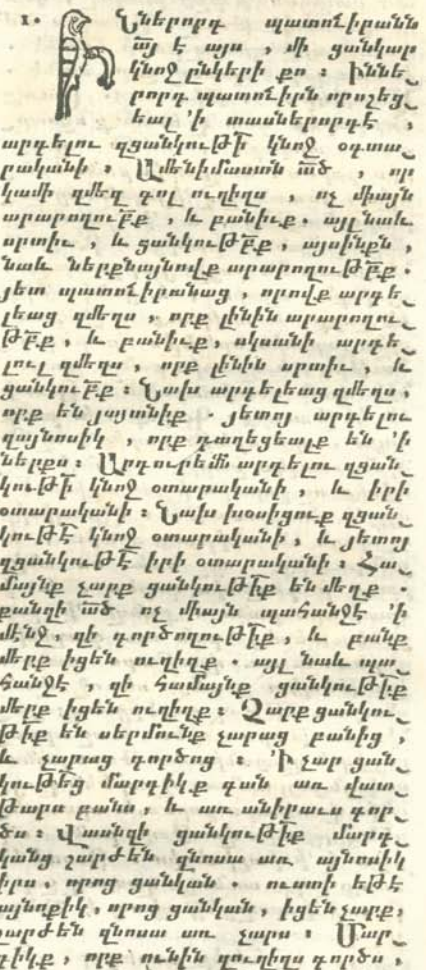 1. Իններորդ պատուիրանն
ա՟յ է այս , մի ցանկար
կնոջ ընկերի քո : Իննե֊
րորդ պատուիրն որոշեց֊
եալ 'ի տասներորդէ ,
արգելու զցանկութի՟ կնոջ օտա֊
րականի : Ամենիմաստն ա՟ծ , որ
կամի զմեզ գոլ ուղիղս , ոչ միայն
արարողու՟բք , և բանիւք . այլ նաև
սրտիւ , և ցանկութ՟բք , այսինքն ,
նաև ներքնայնովք արարողութ՟բք .
յետ պատուիրանաց , որովք արգե֊
լեաց զմեզս , որք լինին արարողու֊
թ՟բք , և բանիւք , սկսանի արգե֊
լուլ զմեզս , որք լինին սրտիւ , և
ցանկու՟բք : Նախ արգելեաց զմեղս ,
որք են յայտնիք . յետոյ արգելու
զայնոսիկ , որք դաղեցեալք են 'ի
ներքս : Արդ ուրե՟մն արգելու զցան֊
կութի՟ կնոջ օտարականի , և իրի
օտարականի : Նախ խօսիցուք զցան֊
կութէ՟ կնոջ օտարականի , և յետոյ
զցանկութէ՟ իրի օտարականի : Հա֊
մայնք չարք ցանկութի՟ք են մեղք .
քանզի ա՟ծ ոչ միայն պահանջէ 'ի
մէնջ , զի գործողութի՟ք , և բանք
մերք իցեն ուղիղք . այլ նաև պա֊
հանջէ , զի համայնք ցանկութի՟ք
մերք իցեն ուղիղք : Չարք ցանկու֊
թի՟ք են սերմունք չարաց բանից ,
և չարաց գործոց : 'Ի չար ցան֊
կութե՟ց մարդիկք գան առ վատ֊
թարս բանս , և առ անիրաւս գոր֊
ծս : Վասնզի ցանկութի՟ք մարդ֊
կանց շարժեն զնոսա առ այնոսիկ
իրս , որոց ցանկան . ուստի եթէ
այնոքիկ , որոց ցանկան , իցեն չարք ,
շարժեն զնոսա առ չարս : Մար֊
դիկք , որք ունին զուղիղս գործս ,